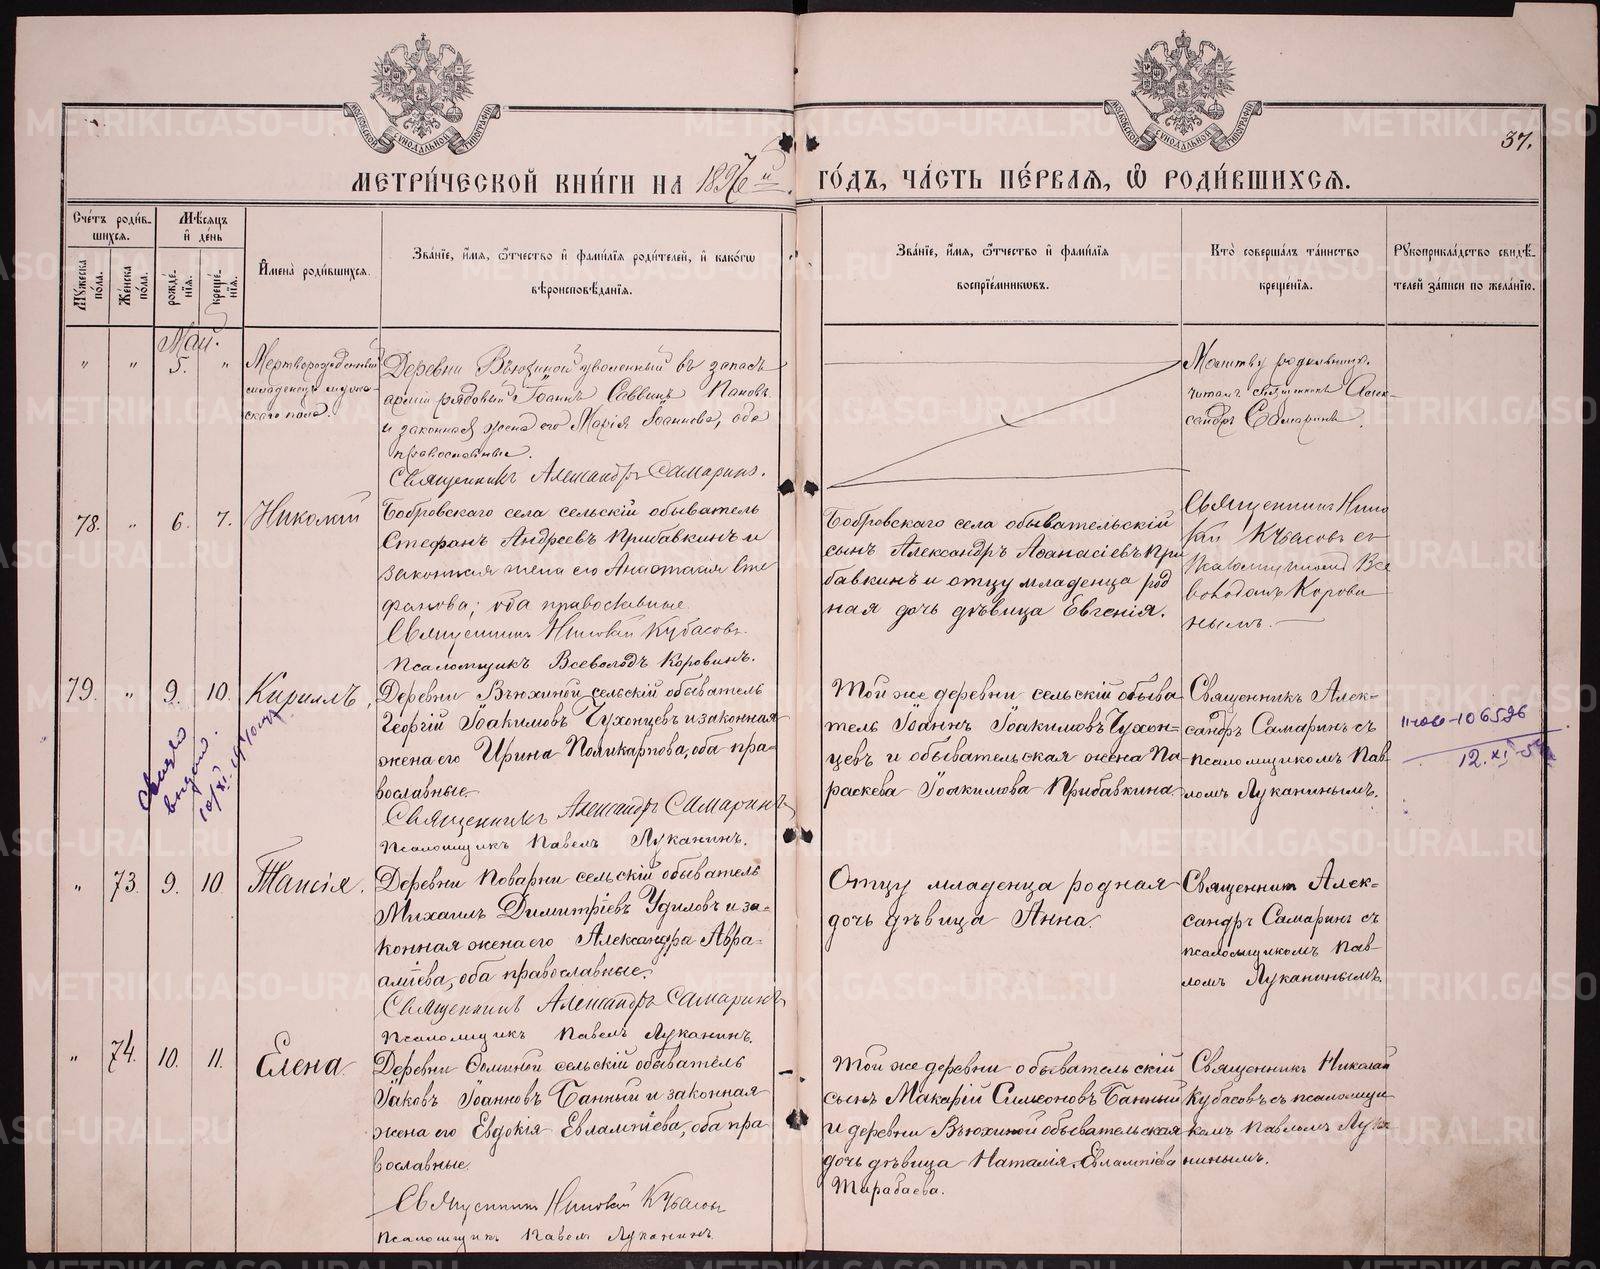 МОСКОВСКОЙ СѴНОДАЛЬНОЙ ТИПОГРАФІИ
МОСКОВСКОЙ СѴНОДАЛЬНОЙ ТИПОГРАФІИ
37.
МЕТРИ́ЧЕСКОЙ КНИ́ГИ НА 1896 й ГО́ДЪ, ЧА́СТЬ ПЕ́РВАЯ, Ѽ РОДИ́ВШИХСЯ.
Сче́тъ роди́в-
шихся.
Му́жеска по́ла.
Же́нска по́ла.
Мѣ́сяцъ
и҆ де́нь
рожде́-
нїя.
креще́-
нїя.
И҆мена̀ роди́вшихся.
Зва́нїе, и҆́мя, ѻ҆́тчество и҆ фами́лїя роди́телей, и҆ како́гѡ
вѣроисповѣ́данїя.
Зва́нїе, и҆́мя, ѻ҆́тчество и҆ фами́лїя
воспрїе́мникѡвъ.
Кто̀ соверша́лъ та́инство
креще́нїя.
Рꙋкоприкла́дство свидѣ́-
телей за́писи по жела́нїю.
Май.
" " 5. "
Мертворожденный
младенецъ муже-
скаго пола.
Деревни Вьюхиной уволенный въ запасъ
арміи рядовый Іоаннъ Саввинъ Пановъ
и законная жена его Марія Іоаннова, оба
православные.
Священникъ Александръ Самаринъ.
Молитву родильницѣ
читалъ священникъ Алек-
сандръ Самаринъ.
78. " 6. 7. Николай
Бобровскаго села сельскій обыватель
Стефанъ Андреевъ Прибавкинъ и
законная жена его Анастасія Сте
фанова; оба православные
Священникъ Николай Кубасовъ.
Псаломщикъ Всеволодъ Коровинъ.
Бобровскаго села обывательскій
сынъ Александръ Аѳанасіевъ При
бавкинъ и отцу младенца род
ная дочь дѣвица Евгенія.
Священникъ Нико
лай Кубасовъ съ
псаломщикомъ Все
володомъ Корови
нымъ.
79. " 9. 10. Кириллъ,
Деревни Вьюхиной сельскій обыватель
Георгій Іоакимовъ Чухонцевъ и законная
жена его Ирина Поликарпова, оба пра-
вославные.
Священникъ Александръ Самаринъ
Псаломщикъ Павелъ Луканинъ.
Той же деревни сельскій обыва-
тель Іоаннъ Іоакимовъ Чухон-
цевъ и обывательская жена Па-
раскева Іоакимова Прибавкина.
Священникъ Алек-
сандръ Самаринъ съ
псаломщикомъ Пав
ломъ Луканинымъ.
выдано
106526
12.XI-
" 73. 9. 10 Таисія.
Деревни Поварни сельскій обыватель
Михаилъ Димитріевъ Удиловъ и за-
конная жена его Александра Авра-
аміева, оба православные.
Священникъ Александръ Самаринъ
Псаломщикъ Павелъ Луканинъ.
Отцу младенца родная
дочь дѣвица Анна.
Священникъ Алек-
сандръ Самаринъ съ
псаломщикомъ Пав-
ломъ Луканинымъ.
" 74. 10. 11. Елена
Деревни Ѳоминой сельскій обыватель
Іаковъ Іоанновъ Банный и законная
жена его Евдокія Евлампіева, оба пра
вославные.
Священникъ Николай Кубасовъ
Псаломщикъ Павелъ Луканинъ.
Той же деревни обывательскій
сынъ Макарій Симеоновъ Банный
и деревни Вьюхиной обывательская
дочь дѣвица Наталія Евлампіева
Тарабаева.
Священникъ Николай
Кубасовъ съ псаломщи
комъ Павломъ Лука
нинымъ.
METRIKI.GASO-URAL.RU